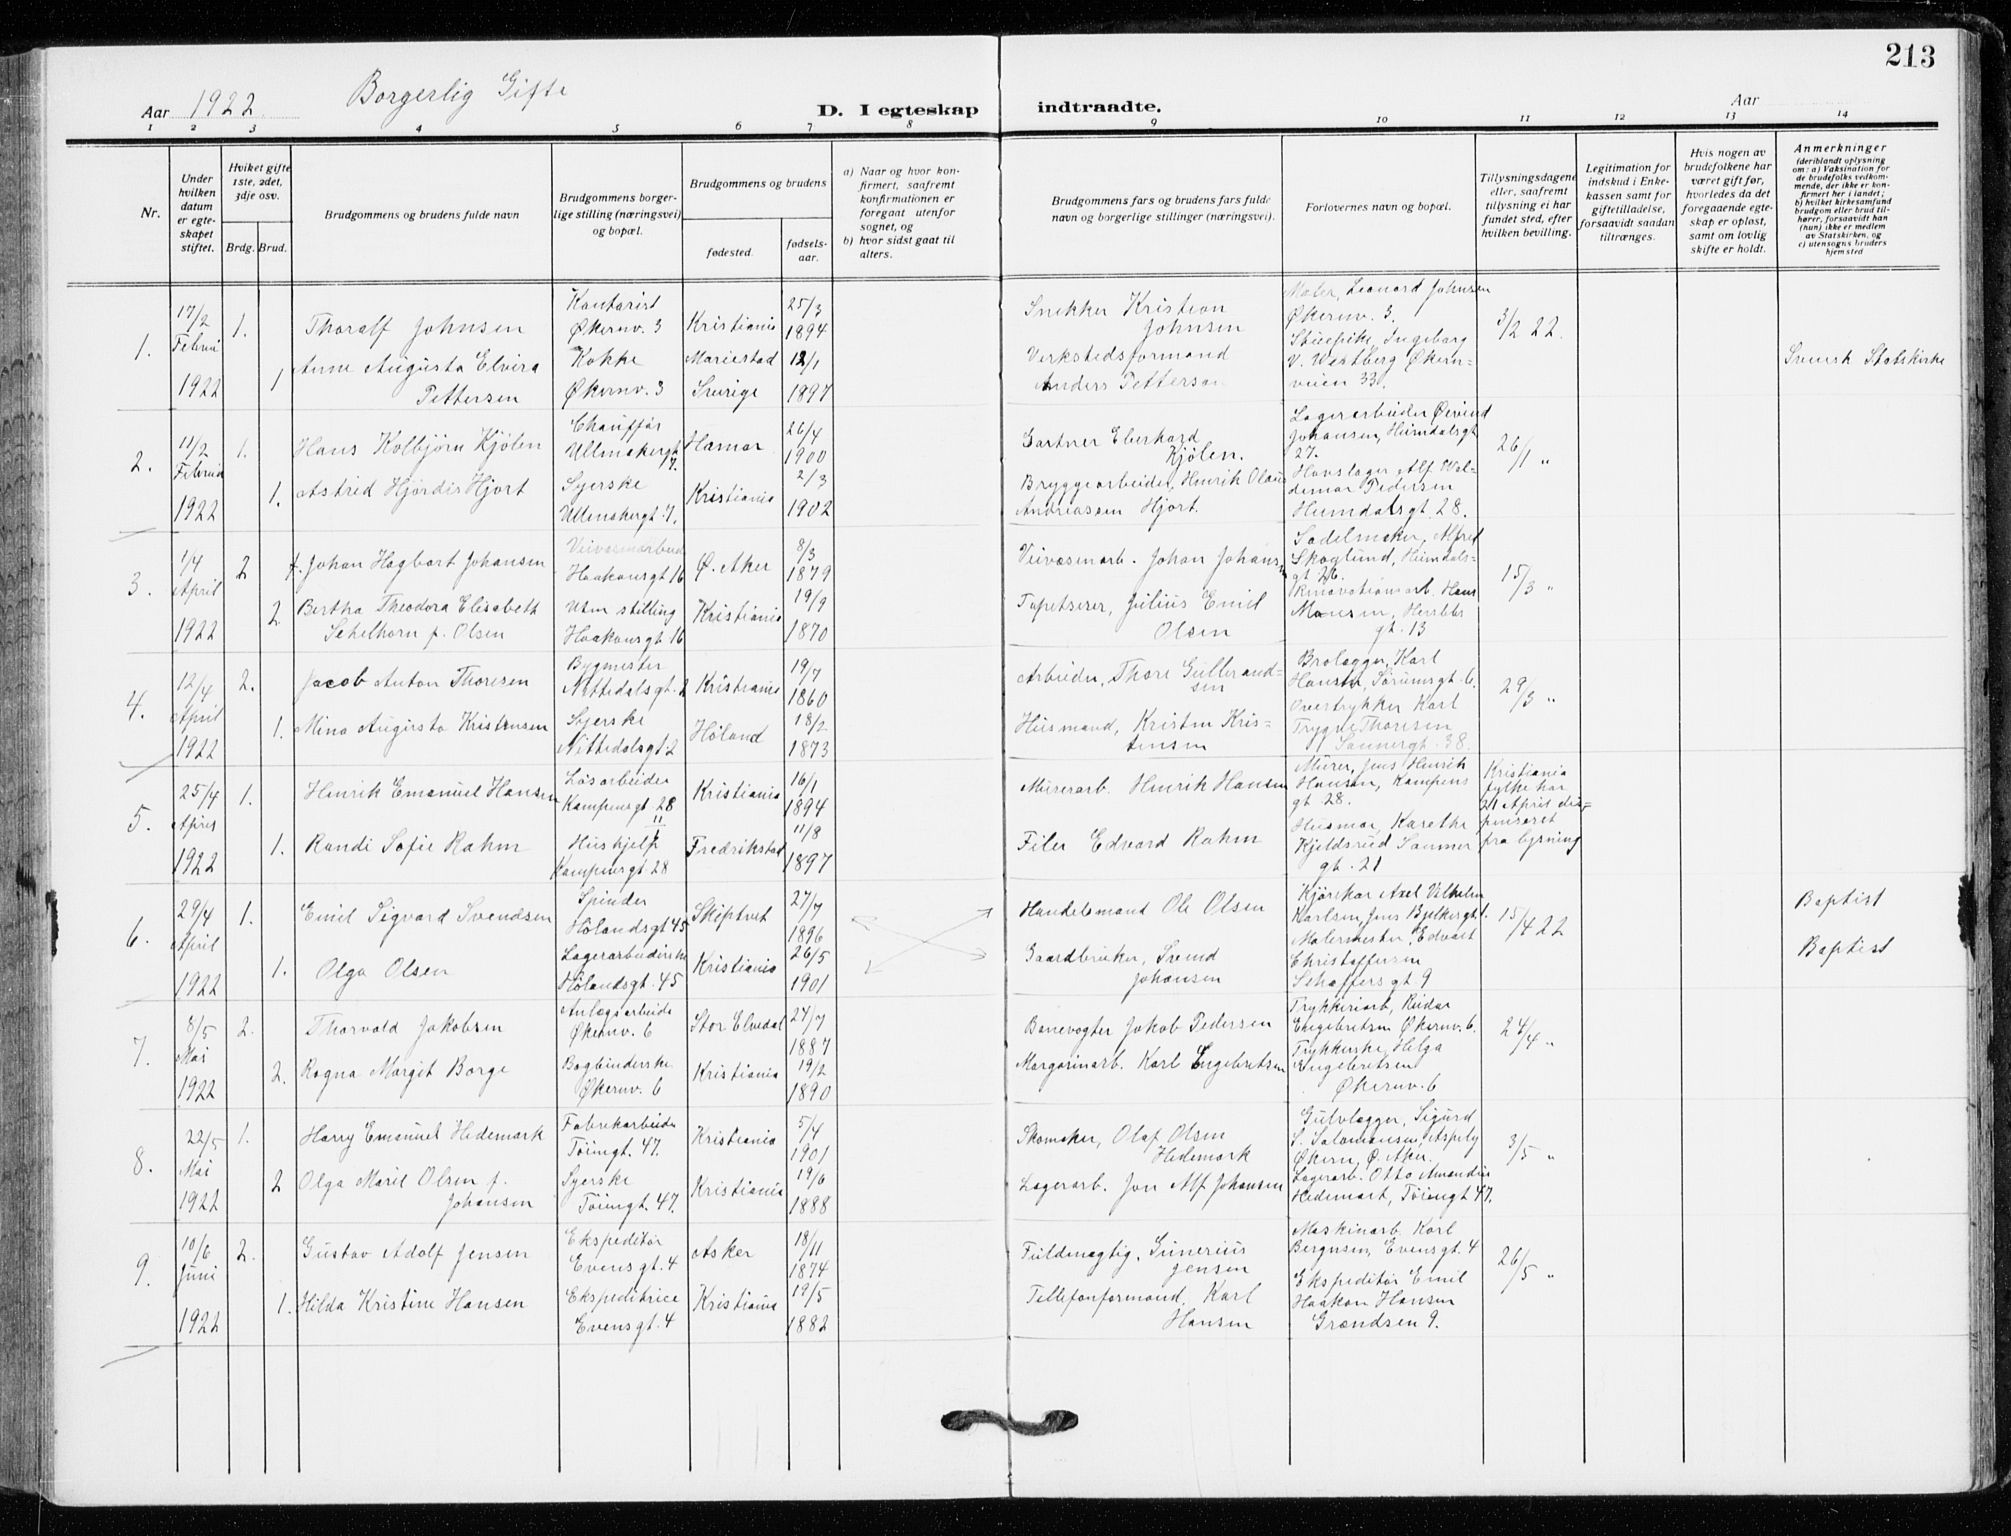 213
Aar 1922 Borgerlig Gifte
D. I egteskap indtraadte.
Aar
1 2 3 4 5 6 7 8 9 10 11 12 13 14
Nr.
Under hvilken datum er egteskapet stiftet.
Hvilket gifte 1ste, 2det, 3dje osv.
Brdg. Brud.
Brudgommens og brudens fulde navn
Brudgommens borgerlige stilling (næringsvei) og bopæl.
Brudgommens og brudens
fødested. fødselsaar.
a) Naar og hvor konfirmert, saafremt konfirmationen er foregaat utenfor sognet, og
b) hvor sidst gaat til alters.
Brudgommens fars og brudens fars fulde navn og borgerlige stillinger (næringsvei).
Forlovernes navn og bopæl.
Tillysningsdagene eller, saafremt tillysning ei har fundet sted, efter hvilken bevilling.
Legitimation for indskud i Enkekassen samt for giftetilladelse, forsaavidt saadan tiltrænges.
Hvis nogen av brudefolkene har været gift før, hvorledes da det foregaaende egteskap er opløst, samt om lovlig skifte er holdt.
Anmerkninger
(deriblandt oplysning om: a) Vaksination for de brudefolks vedkommende, der ikke er konfirmert her i landet; b) hvilket kirkesamfund brudgom eller brud tilhører, forsaavidt han (hun) ikke er medlem av Statskirken, og c) utensogns bruders hjemsted
1. 17/2 Februar 1922
1. Thoralf Johnsen
Kontorist Økernv. 3
Kristiania 25/3 1894
Snekker Kristian Johnsen
Maler, Leonard Johnsen Økernv. 3.
3/2 22.
1 Anne Augusta Elvira Pettersen
Kokke Økernv. 3
Mariestad Sverige 12/1 1897
Verkstedsformand Anders Petterson
Stuepike, Ingeborg V. Westberg Økernveien 33.
Svensk Statskirke
2. 11/2 Februar 1922
1. Hans Kolbjørn Kjølen
Chauffør Ullensakergt. 7.
Hamar 26/4 1900
Gartner Eberhard Kjølen.
Lagerarbeider Øivind Johansen, Heimdalsgt 27.
26/1 "
1. Astrid Hjørdis Hjort
Syerske Ullensakergt. 7.
Kristiania 2/3 1902
Bryggearbeider, Henrik Olaus Andreassen Hjort.
Hovslager Alf Waldemar Pedersen Heimdalsgt. 28.
3. 1/4 April 1922
2 f. Johan Hagbart Johansen
Veivæsenarbeid Haakonsgt 16
Ø. Aker 8/3 1879
Veivæsenarb. Johan Johansen
Sadelmaker, Alfred Skoglund, Heimdalsgt 26.
15/3 "
2 Bertha Theodora Elisabeth Schelhorn f. Olsen
Uten stilling Haakonsgt. 16
Kristiania 19/9 1870
Tapetserer, Julius Emil Olsen
Renovationsarb. Hans Monsen, Herslebsgt. 13
4. 12/4 April 1922
2. Jacob Anton Thoresen
Bygmester Nittedalsgt. 2
Kristiania 19/7 1860
Arbeider, Thore Gulbrandsen
Brolægger, Karl Hansen, Sørumsgt. 6.
29/3 "
1. Mina Augusta Kristensen
Syerske Nittedalsgt. 2
Høland 18/2 1873
Husmand, Kristen Kristensen
Overtrykker Karl Trygve Thoresen Sannergt. 38.
5. 25/4 April 1922
1. Henrik Emanuel Hansen
Løsarbeider Kampensgt 28 II
Kristiania 16/1 1894
Murerarb. Henrik Hansen
Murer, Jens Henrik Hansen, Kampensgt 28.
Kristiania fylke har 21 April dispenseret fra lysning
1. Randi Sofie Rahm
Hushjelp Kampensgt. 28
Fredrikstad 11/8 1897
Filer Edvard Rahm
Husmor, Karethe Kjeldsrud Sannergt. 21
6. 29/4 April 1922
1. Emil Sigvard Svendsen
Spinder Hølandsgt 45
Skiptvet 27/7 1896
Handelsmand Ole Olsen
Kjørekar Axel Vilhelm Karlsen, Jens Bjelkesgt. 1.
15/4 22
Baptist
1. Olga Olsen
Lagerarbeiderske Hølandsgt. 45
Kristiania 26/5 1901
Gaardbruker, Svend Johansen
Malermester, Edvart Christoffersen Schaffersgt 9
Baptist
7. 8/5 Mai 1922
2. Thorvald Jakobsen
Anlægsarbeider Økernv. 6
Stor Elvedal 24/7 1887
Banevogter Jakob Pedersen
Trykkeriarb, Reidar Engebretsen Økernv. 6.
24/4 "
2. Ragna Margit Borge
Bogbinderske Økernv. 6
Kristiania 19/2 1890
Margarinarb. Karl Engebretsen
Trykkerske, Helga Engebretsen Økernv. 6
8. 22/5 Mai 1922
1. Harry Emanuel Hedemark
Fabrikarbeider Tøiengt. 47.
Kristiania 5/4 1901
Skomaker, Olaf Olsen Hedemark
Gulvlægger, Sigurd S. Salomonsen, Aspely Økern, Ø. Aker.
3/5 "
2 Olga Maril Olsen f. Johansen
Syerske Tøiengt. 47.
Kristiania 19/6 1888
Lagerarb. Jon Alf Johansen
Lagerarb. Otto Amandus Hedemark, Tøiengt 47.
9. 10/6 Juni 1922
2. Gustav Adolf Jensen
Ekspeditør Evensgt. 4
Asker 18/11 1874
Fuldmægtig, Gunerius Jensen
Maskinarb. Karl Bergersen, Evensgt. 4
26/5 "
1. Hilda Kristine Hansen
Ekspeditrice Evensgt. 4
Kristiania 19/5 1882
Tellefonformand. Karl Hansen
Ekspeditør Emil Haakon Hansen Grændsen 9.